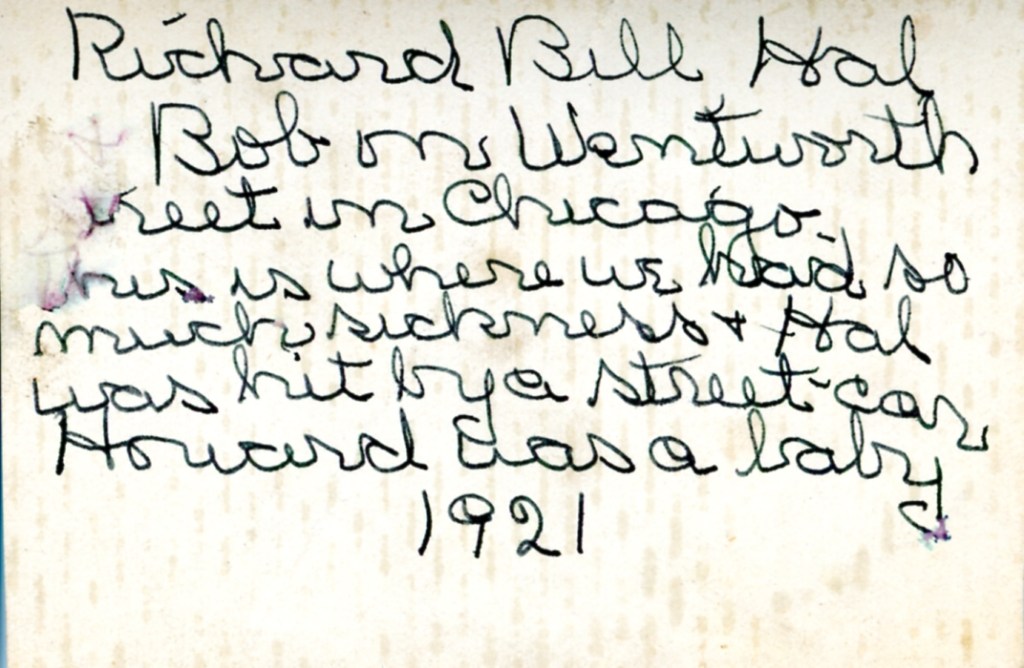 Richard Bill Hal
Bob on Wentworth
reet in Chicago.
his is where we had so
much sickness + Hal
was hit by a street-car
Howard was a baby
1921